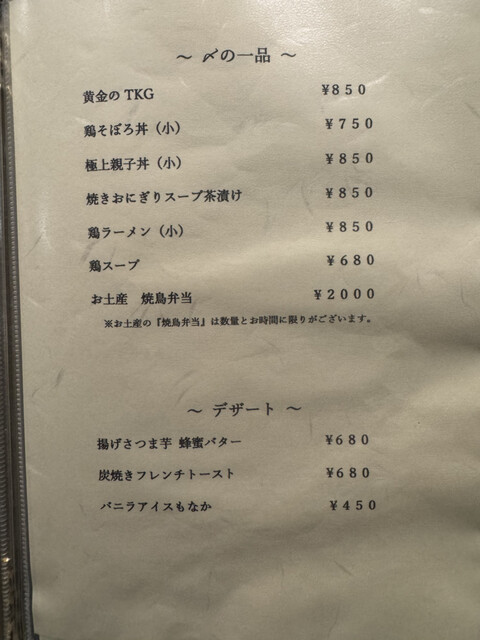 ～ 〆の一品 ～
黄金の TKG ¥850
鶏そぼろ丼（小） ¥750
極上親子丼（小） ¥850
焼きおにぎりスープ茶漬け ¥850
鶏ラーメン（小） ¥850
鶏スープ ¥680
お土産　焼鳥弁当 ¥2000
※お土産の『焼鳥弁当』は数量とお時間に限りがございます。
～ デザート ～
揚げさつま芋 蜂蜜バター ¥680
炭焼きフレンチトースト ¥680
バニラアイスもなか ¥450